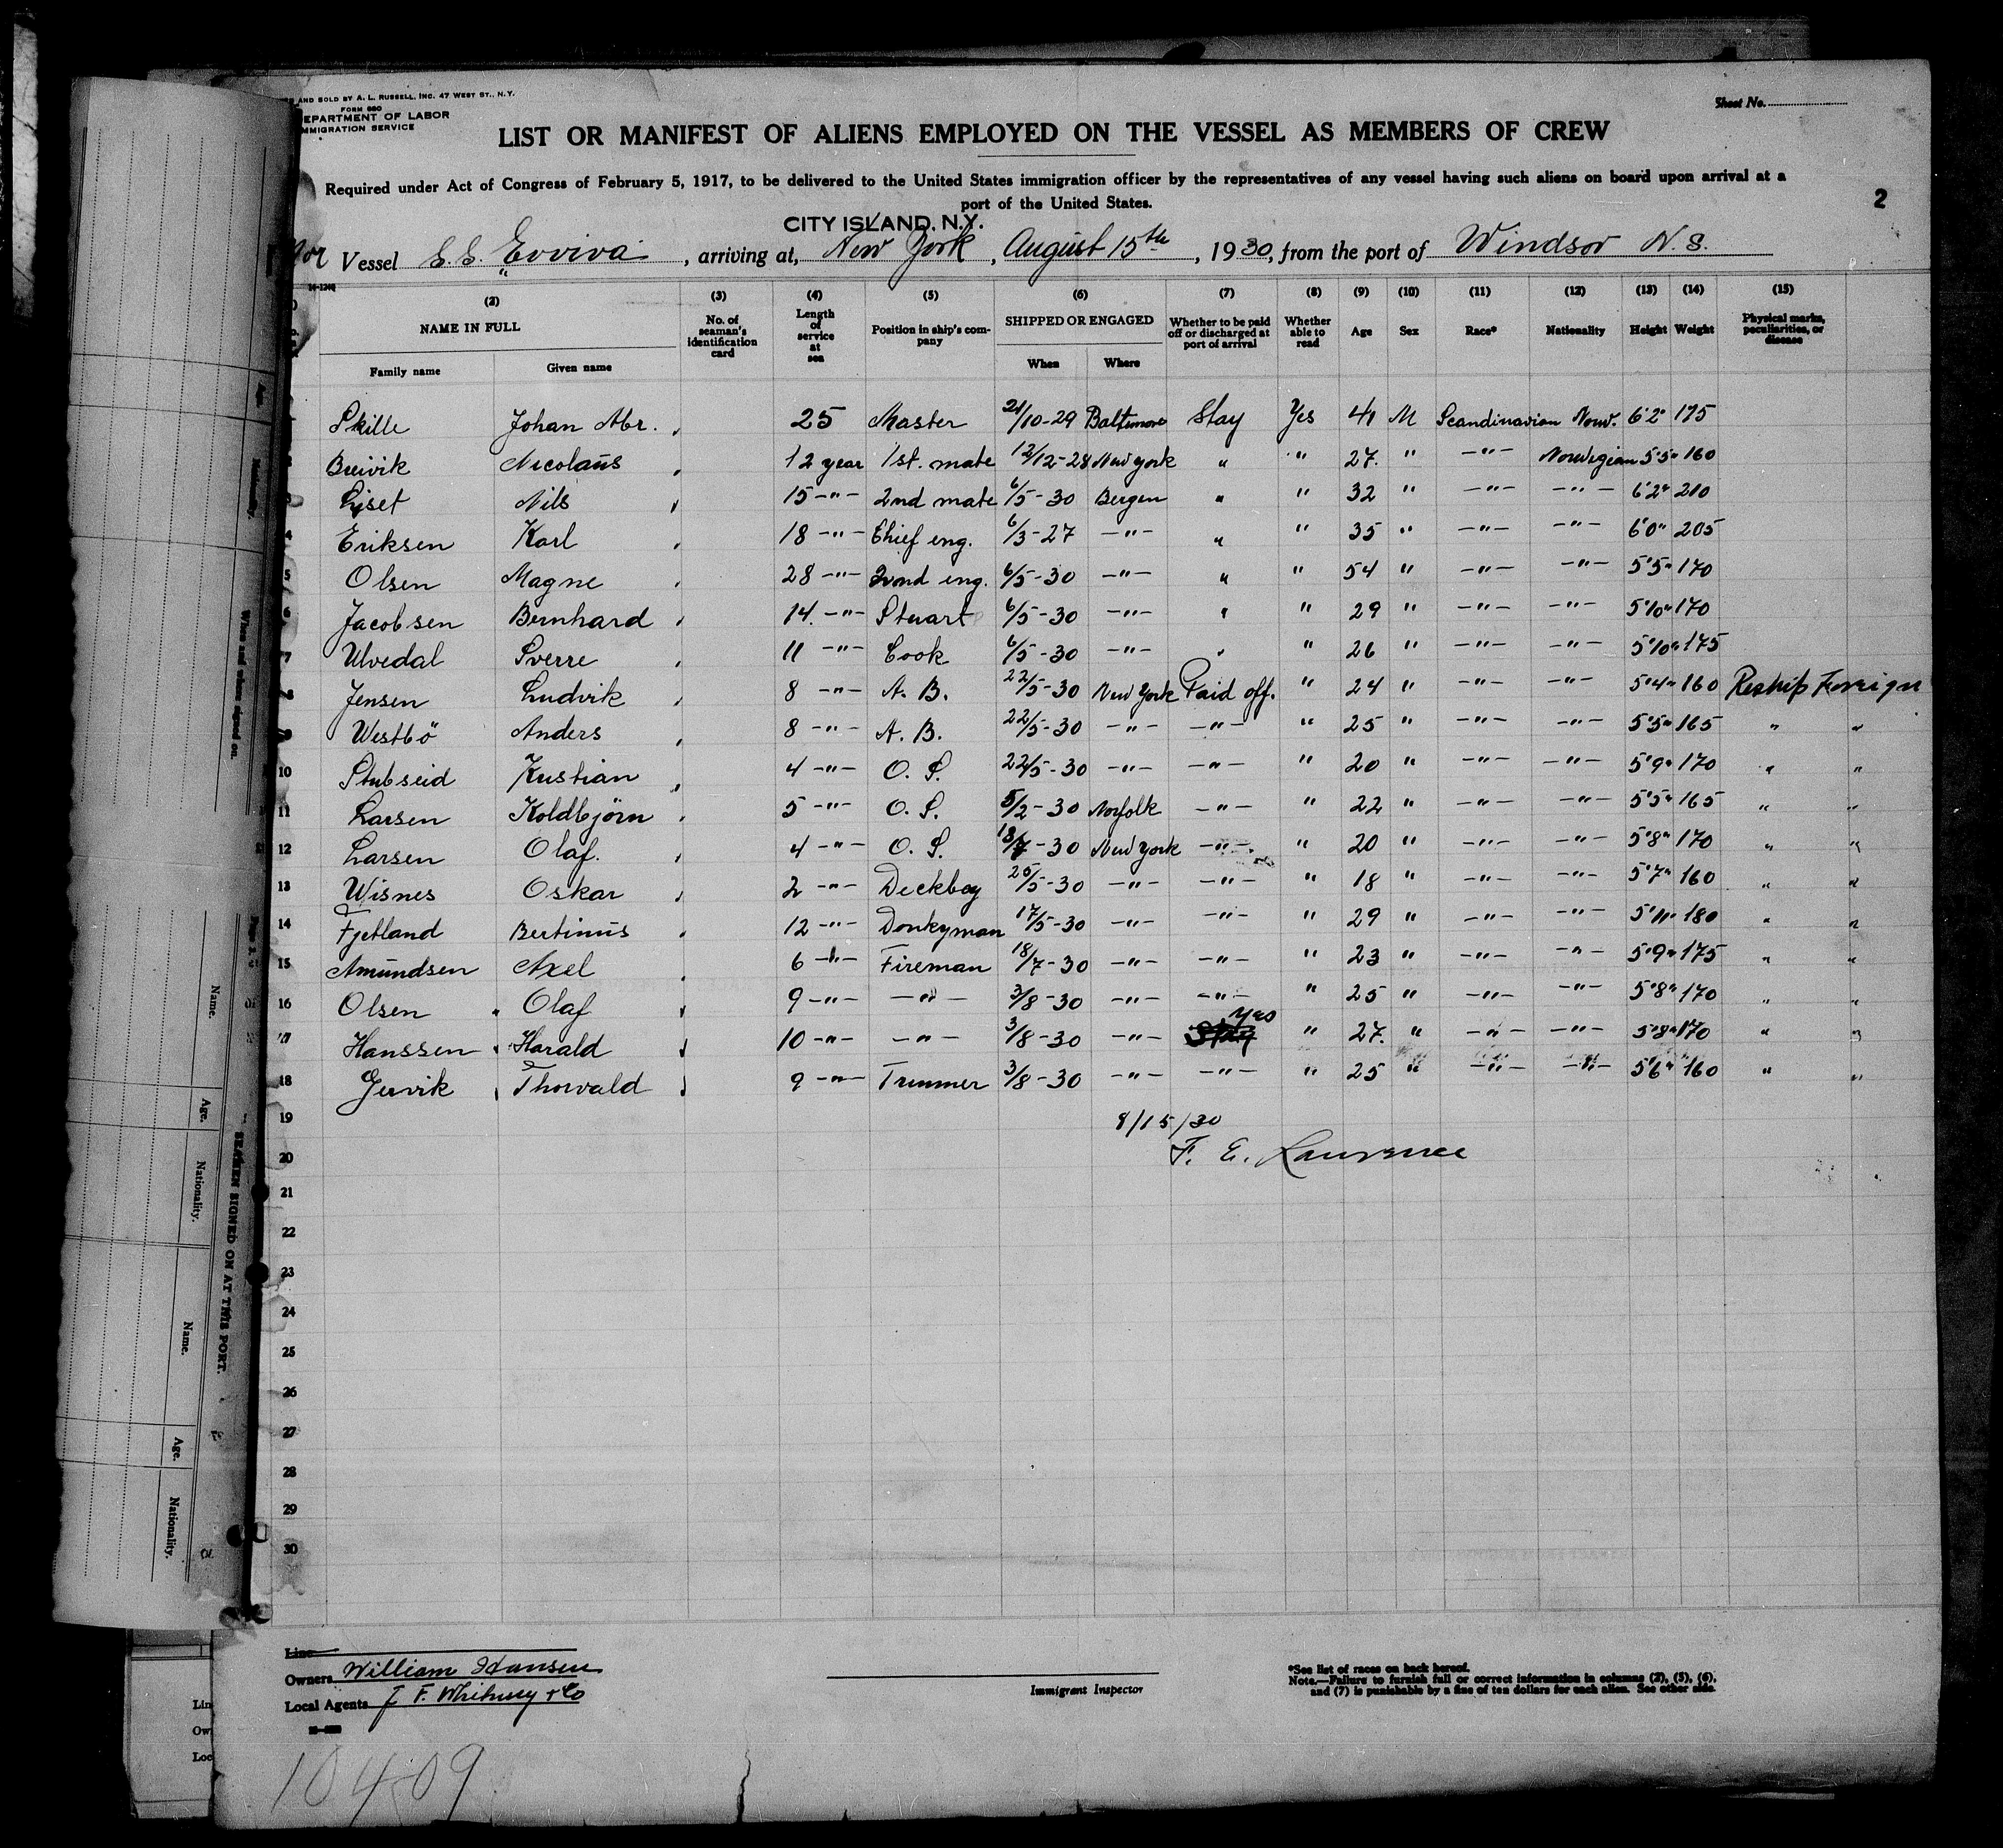 AND SOLD BY A. L. RUSSELL, INC. 47 WEST ST., N.Y.
FORM 680
DEPARTMENT OF LABOR
IMMIGRATION SERVICE
Sheet No.
LIST OR MANIFEST OF ALIENS EMPLOYED ON THE VESSEL AS MEMBERS OF CREW
Required under Act of Congress of February 5, 1917, to be delivered to the United States immigration officer by the representatives of any vessel having such aliens on board upon arrival at a
port of the United States.
2
CITY ISLAND, N.Y.
Nor Vessel S.S. Evviva, arriving at, New York, August 15th, 1930, from the port of Windsor N.S.
(2) (3) (4) (5) (6) (7) (8) (9) (10) (11) (12) (13) (14) (15)
NAME IN FULL No. of seaman's identification card Length of service at sea Position in ship's company SHIPPED OR ENGAGED Whether to be paid off or discharged at port of arrival Whether able to read Age Sex Race* Nationality Height Weight Physical marks, peculiarities, or disease
Family name Given name When Where
Skille Johan Abr. 25 Master 21/10-29 Baltimore Stay Yes 41 M Scandinavian Norw. 6'2" 175
Breivik Nicolaüs 12 year 1st. mate 12/12-28 New York " " 27. " -"- Norwegian 5'5" 160
3 Liset Nils 15 -"- 2nd mate 6/5-30 Bergen " " 32 " -"- -"- 6'2" 210
4 Eriksen Karl 18 -"- Chief eng. 6/3-27 -"- " " 35 " -"- -"- 6'0" 205
5 Olsen Magne 28 -"- 2ond eng. 6/5-30 -"- " " 54 " -"- -"- 5'5" 170
6 Jacobsen Bernhard 14. -"- Stuart 6/5-30 -"- " " 29 " -"- -"- 5'10" 170
7 Ulvedal Sverre 11 -"- Cook 6/5-30 -"- " " 26 " -"- -"- 5'10" 175
8 Jensen Ludvik 8 -"- A. B. 22/5-30 New York Paid off. " 24 " -"- -"- 5'4" 160 Reship Foreign
9 Westbö Anders 8 -"- A. B. 22/5-30 -"- -"- " 25 " -"- -"- 5'5" 165 " "
10 Stubseid Kristian 4 -"- O. S. 22/5-30 -"- -"- " 20 " -"- -"- 5'9" 170 " "
11 Larsen Koldbjörn 5 -"- O. S. 5/2-30 Norfolk -"- " 22 " -"- -"- 5'5" 165 " "
12 Larsen Olaf. 4 -"- O. S. 18/7-30 New York -"- " 20 " -"- -"- 5'8" 170 " "
13 Wisnes Oskar 2 -"- Deckboy 25/5-30 -"- -"- " 18 " -"- -"- 5'7" 160 " "
14 Fjetland Bertinüs 12 -"- Donkyman 17/5-30 -"- -"- " 29 " -"- -"- 5'11" 180 " "
15 Amündsen Axel 6 -"- Fireman 18/7-30 -"- -"- " 23 " -"- -"- 5'9" 175 " "
16 Olsen Olaf 9 -"- -"- 3/8-30 -"- -"- " 25 " -"- -"- 5'8" 170 " "
17 Hanssen Harald 10 -"- -"- 3/8-30 -"- Stay yes " 27. " -"- -"- 5'8" 170 " "
18 Jervik Thorvald 9 -"- Trimmer 3/8-30 -"- -"- " 25 " -"- -"- 5'6" 160 " "
19
8/15/30
20
F. E. Lawrence
21
22
23
24
25
26
27
28
29
30
Line
Owners William Hansen
Local Agents J. F. Whitney & Co
Immigrant Inspector
*See list of races on back hereof.
Note.—Failure to furnish full or correct information in columns (2), (5), (6),
and (7) is punishable by a fine of ten dollars for each alien. See other side.
10409
Age.
Nationality.
When and where signed on.
Name.
Age.
Nationality.
Name.
Age.
Nationality.
SEAMEN SIGNED ON AT THIS PORT.
Lin
Ow
Loc